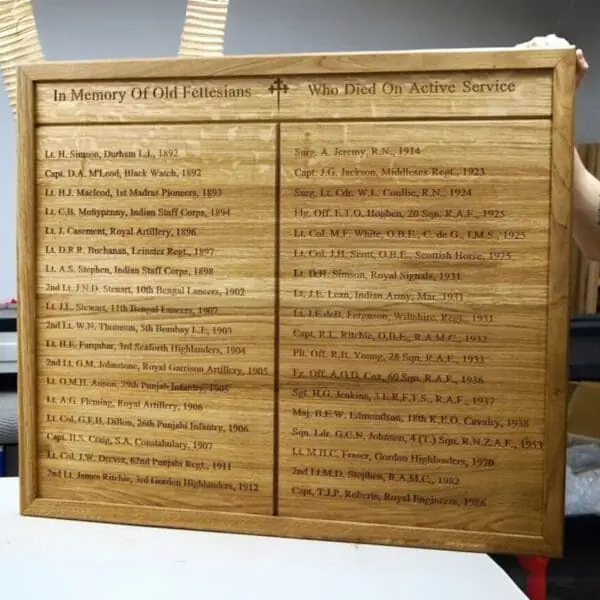 In Memory Of Old Fettesians
Who Died On Active Service
Lt. H. Simson, Durham L.I., 1892
Capt. D.A. M'Leod, Black Watch, 1892
Lt. H.J. Macleod, 1st Madras Pioneers, 1893
Lt. C.B. Monypenny, Indian Staff Corps, 1894
Lt. J. Casement, Royal Artillery, 1896
Lt. D.R.R. Buchanan, Leinster Regt., 1897
Lt. A.S. Stephen, Indian Staff Corps, 1898
2nd Lt. J.N.D. Steuart, 10th Bengal Lancers, 1902
Lt. J.L. Stewart, 11th Bengal Lancers, 1902
2nd Lt. W.N. Thomson, 5th Bombay L.I., 1903
Lt. H.E. Farquhar, 3rd Seaforth Highlanders, 1904
2nd Lt. G.M. Johnstone, Royal Garrison Artillery, 1905
Lt. O.M.H. Anson, 29th Punjab Infantry, 1905
Lt. A.G. Fleming, Royal Artillery, 1906
Lt. Col. G.F.H. Dillon, 26th Punjab Infantry, 1906
Capt. H.S. Craig, S.A. Constabulary, 1907
Lt. Col. J.W. Drever, 62nd Punjabi Regt., 1911
2nd Lt. James Ritchie, 3rd Gordon Highlanders, 1912
Surg. A. Jeremy, R.N., 1914
Capt. J.G. Jackson, Middlesex Regt., 1923
Surg. Lt. Cdr. W.L. Coullie, R.N., 1924
Flg. Off. E.T.O. 20 Sqn. R.A.F., 1925
Lt. Col. M.F. White, O.B.E., C. de G., I.M.S., 1925
Lt. Col. J.H. Scott, O.B.E., Scottish Horse, 1925
Lt. D.H. Simson, Royal Signals, 1931
Lt. J.E. Lean, Indian Army, Mar. 1931
Lt. J.F.deB. Ferguson, Wiltshire, Regt., 1931
Capt. R.L. Ritchie, O.B.E., R.A.M.C., 1932
Plt. Off. R.B. Young, 28 Sqn. R.A.F., 1933
Fg. Off. A.O.D. Cox, 60 Sqn. R.A.F., 1936
Sgt. H.G. Jenkins, 3 E.R.F.T.S., R.A.F., 1937
Maj. B.E.W. Edmondson, 18th K.E.O. Cavalry, 1938
Sqn. Ldr. G.C.N. Johnson, 4 (T.) Sqn. R.N.Z.A.F., 1953
Lt. M.H.C. Fraser, Gordon Highlanders, 1970
2nd Lt.M.D. Stephen, R.A.M.C., 1982
Capt. T.J.P. Roberts, Royal Engineers, 1986